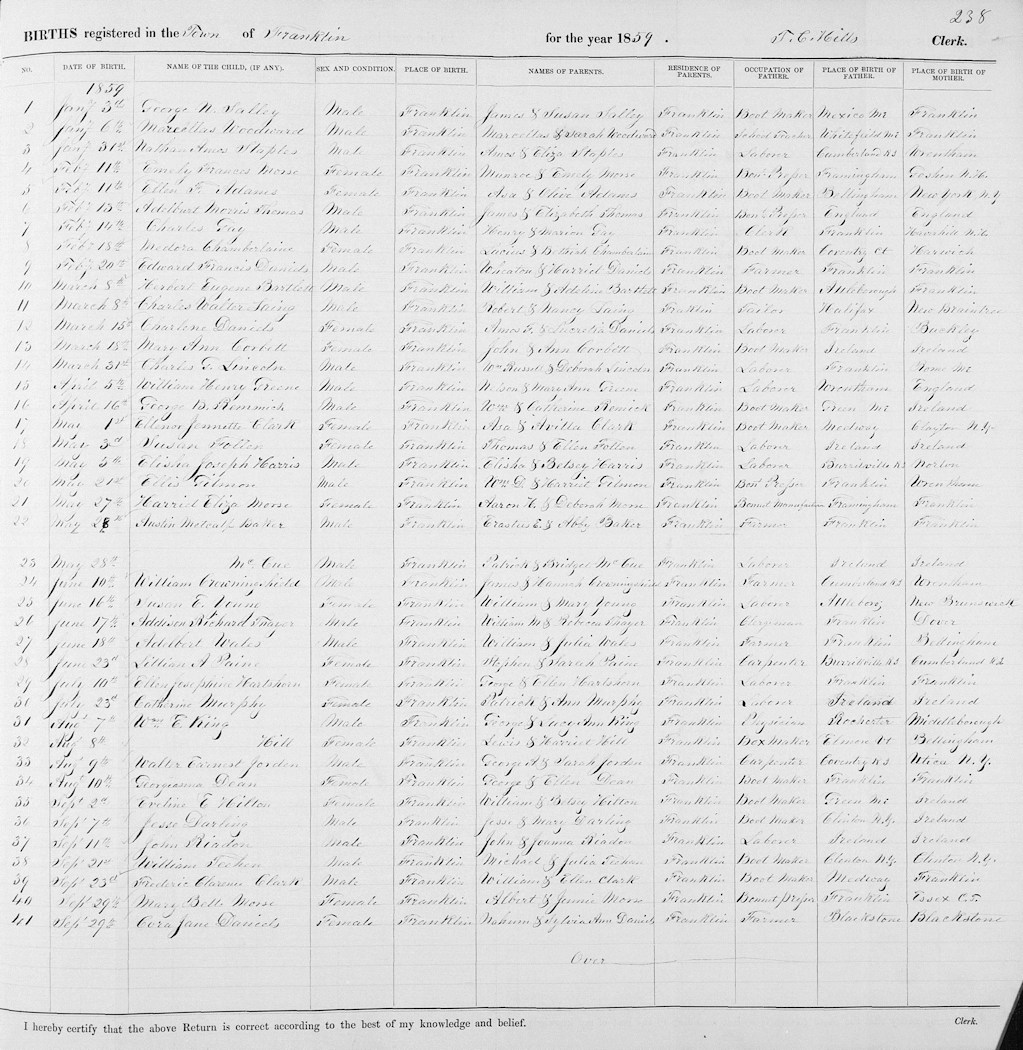 238
BIRTHS registered in the Town of Franklin for the year 1859. T. C. Hills Clerk.
NO. DATE OF BIRTH. NAME OF THE CHILD, (IF ANY). SEX AND CONDITION. PLACE OF BIRTH. NAMES OF PARENTS. RESIDENCE OF PARENTS. OCCUPATION OF FATHER. PLACE OF BIRTH OF FATHER. PLACE OF BIRTH OF MOTHER.
1859
1 Jany 3rd George N. Male Franklin James & Susan Franklin Boot Maker Mexico Me Franklin
2 Jany 6th Marcellus Woodward Male Franklin Marcellus & Sarah Woodward Franklin School Teacher Whitefield Me Franklin
3 Jany 31st Nathan Amos Staples Male Franklin Amos & Eliza Staples Franklin Labour Cumberland R.I Wrentham
4 Feby 11th Emely Frances Morse Female Franklin Munroe & Emely Morse Franklin Framingham Goshen
5 Feby 11th Ellen F. Adams Female Franklin Asa & Olive Adams Franklin Boot Maker Bellingham New York N.Y
6 Feby 13th Adelbert Morris Thomas Male Franklin James & Elizabeth Thomas Franklin England England
7 Feby 14th Charles Gay Male Franklin Henry & Marion Gay Franklin Clerk Franklin
8 Feby 18th Medora Chamberlaine Female Franklin Lucius & Chamberlain Franklin Boot Maker Coventry Ct Harwich
9 Feby 20th Edward Francis Daniels Male Franklin Wheaton & Harriet Daniels Franklin Farmer Franklin Franklin
10 March 8th Herbert Eugene Bartlett Male Franklin William & Adeline Bartlett Franklin Boot Maker Attleborough Franklin
11 March 8th Charles Walter Male Franklin Robert & Nancy Franklin Tailor Halifax New Braintree
12 March 15th Charlene Daniels Female Franklin Amos F. & Lucretia Daniels Franklin Labour Franklin Buckley
13 March 18th Mary Ann Corbett Female Franklin John & Ann Corbett Franklin Boot Maker Ireland Ireland
14 March 31st Charles F. Lincoln Male Franklin Wm Russell & Deborah Lincoln Franklin Labour Franklin Rome Me
15 April 5th William Henry Greene Male Franklin Nelson & Mary Ann Greene Franklin Labour Wrentham England
16 April 16th George B. Remmick Male Franklin Wm & Catherine Remick Franklin Boot Maker Green Me Ireland
17 May 1st Ellenor Jennette Clark Female Franklin Asa & Avilla Clark Franklin Boot Maker Medway Clayton N.Y.
18 May 3rd Susan Follen Female Franklin Thomas & Ellen Follen Franklin Labour Ireland Ireland
19 May 5th Elisha Joseph Harris Male Franklin Elisha & Betsey Harris Franklin Labour Burrillville R.I Norton
20 May 21st Ellis Gilmon Male Franklin Wm D. & Harriet Gilmon Franklin Franklin Wrentham
21 May 27th Harriet Eliza Morse Female Franklin Aaron H. & Deborah Morse Franklin Framingham Franklin
22 May 28th Austin Metcalf Baker Male Franklin Erastus E. & Abby Baker Franklin Farmer Franklin Franklin
23 May 28th Mc Cue Male Franklin Patrick & Bridget Mc Cue Franklin Labour Ireland Ireland
24 June 10th William Crowningshield Male Franklin James & Hannah Crowningshield Franklin Farmer Cumberland R.I Wrentham
25 June 16th Susan E. Young Female Franklin William & Mary Young Franklin Labour Attleboro New Brunswick
26 June 17th Addison Richard Thayer Male Franklin William M. & Rebecca Thayer Franklin Clergyman Franklin Dover
27 June 18th Adelbert Wales Male Franklin William & Julia Wales Franklin Farmer Franklin Bellingham
28 June 23d Lillian A Paine Female Franklin Stephen & Sarah Paine Franklin Carpenter Burrillville R.I Cumberland R.I
29 July 10th Ellen Josephine Hartshorn Female Franklin George & Ellen Hartshorn Franklin Labour Franklin Franklin
30 July 23d Catherine Murphy Female Franklin Patrick & Ann Murphy Franklin Labour Ireland Ireland
31 Augt 7th Wm E. King Male Franklin George & Lucy Ann King Franklin Physician Rochester Middleborough
32 Augt 8th Hill Female Franklin Lewis & Harriet Hill Franklin Box Maker Elmore Vt Bellingham
33 Augt 9th Walter Earnest Jorden Male Franklin George A & Sarah Jorden Franklin Carpenter Coventry R.I Utica N.Y.
34 Augt 10th Georgieanna Dean Female Franklin George & Ellen Dean Franklin Boot Maker Franklin Franklin
35 Sept 2d Eveline E Hilton Female Franklin William & Betsy Hilton Franklin Boot Maker Green Me Ireland
36 Sept 7th Jesse Darling Male Franklin Jesse & Mary Darling Franklin Boot Maker Clinton N.Y. Ireland
37 Sept 11th John Riadon Male Franklin John & Joanna Riadon Franklin Labour Ireland Ireland
38 Sept 21st William Teehen Male Franklin Michael & Julia Teehan Franklin Boot Maker Clinton N.Y. Clinton N.Y.
39 Sept 23d Frederic Clarence Clark Male Franklin William & Ellen Clark Franklin Boot Maker Medway Franklin
40 Sept 29th Mary Belle Morse Female Franklin Albert & Jennie Morse Franklin Bonnet Presser Franklin Essex C.T.
41 Sept 29th Cora Jane Daniels Female Franklin Nahum & Sylvia Ann Daniels Franklin Farmer Blackstone Blackstone
Over
I hereby certify that the above Return is correct according to the best of my knowledge and belief. Clerk.